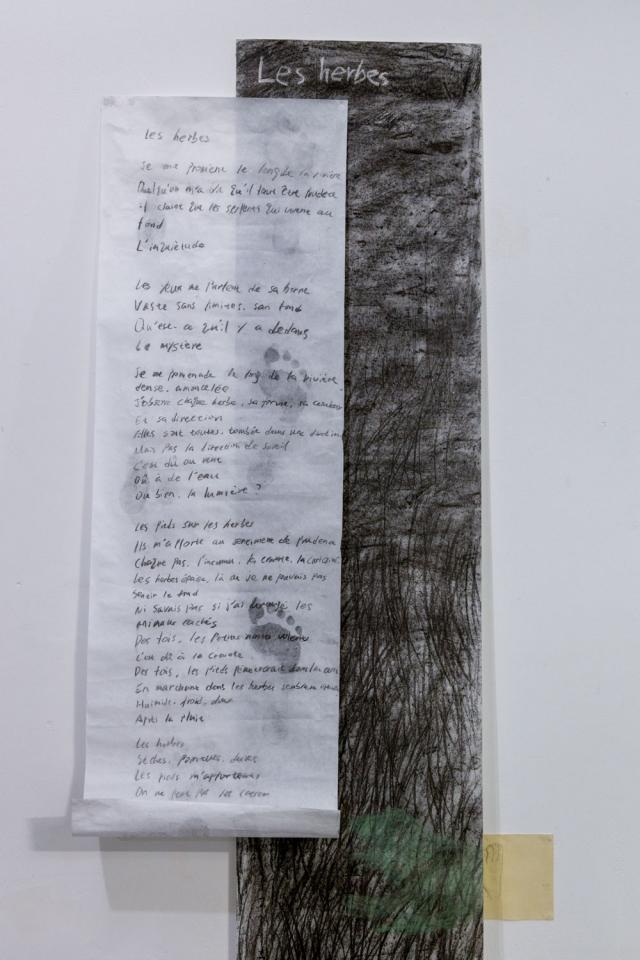 Les herbes
Les herbes
Se me promène le long de la rivière
Quelqu'un m'a dit qu'il faut être prudence
il que les serpents qui vivent au
fond
L'inquiétude
Les yeux me parlent de sa
Vaste sans limites, san fond
Qu'est-ce qu'il y a dedans
Le mystère
Se me promenade le long de la rivière
dense, amoncelée
J'observe chaque herbe, sa forme, sa couleur
Et sa direction
Elles sont toutes, tombée dans une direction
Mais pas la direction de soleil
C'est dû au vent
Où à de l'eau
Ou bien, la lumière ?
Les pieds sur les herbes
Ils m'apporte au sentiment de prudence
Chaque pas, l'inconnu, la crainte, la curiosité
Les herbes épaisse, là où je ne pouvais pas
sentir le fond
Ni savais pas si j'ai les
animaux cachés
Des fois, les
C'est dû à la
Des fois, les pieds dans
En marchant dans les herbes
Humide, froid,
Après la pluie
Les herbes
Sèches, pointues,
Les pieds m'apportent
On ne peut pas les